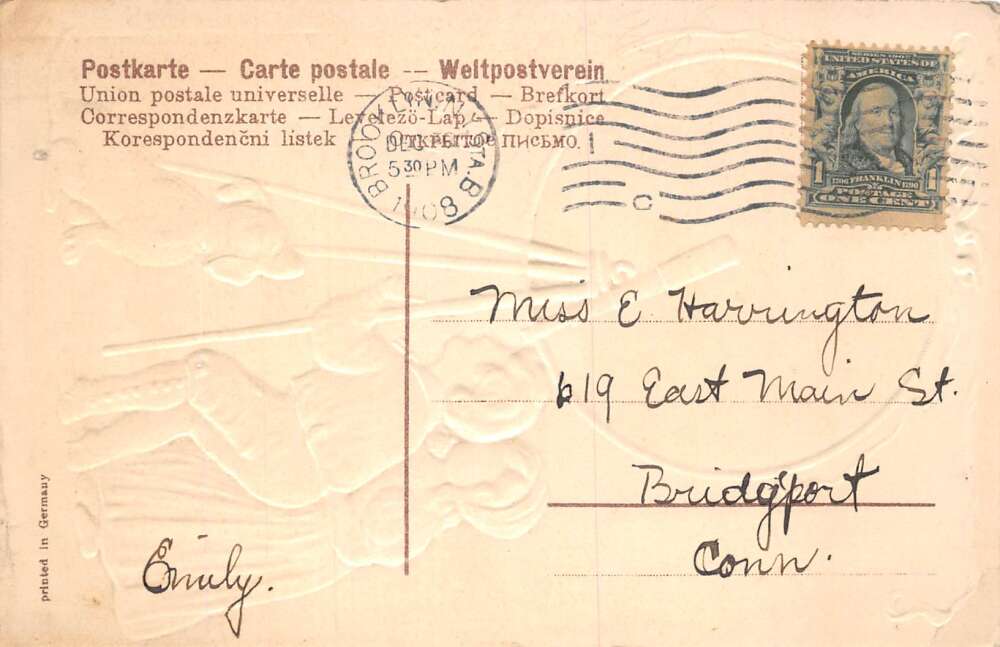 Postkarte — Carte postale -- Weltpostverein
Union postale universelle — Postcard — Brefkort
Correspondenzkarte — Levelező-Lap — Dopisnice
Korespondenční listek — Открытое письмо.
BROOKLYN, N.Y.
STA. B
DEC
5 30 PM
1908
1
C
SERIES 1902
UNITED STATES OF
AMERICA
1706 FRANKLIN 1790
1 1
POSTAGE
ONE CENT
Miss E Harrington
619 East Main St.
Bridg'port
Conn.
Emily.
printed in Germany